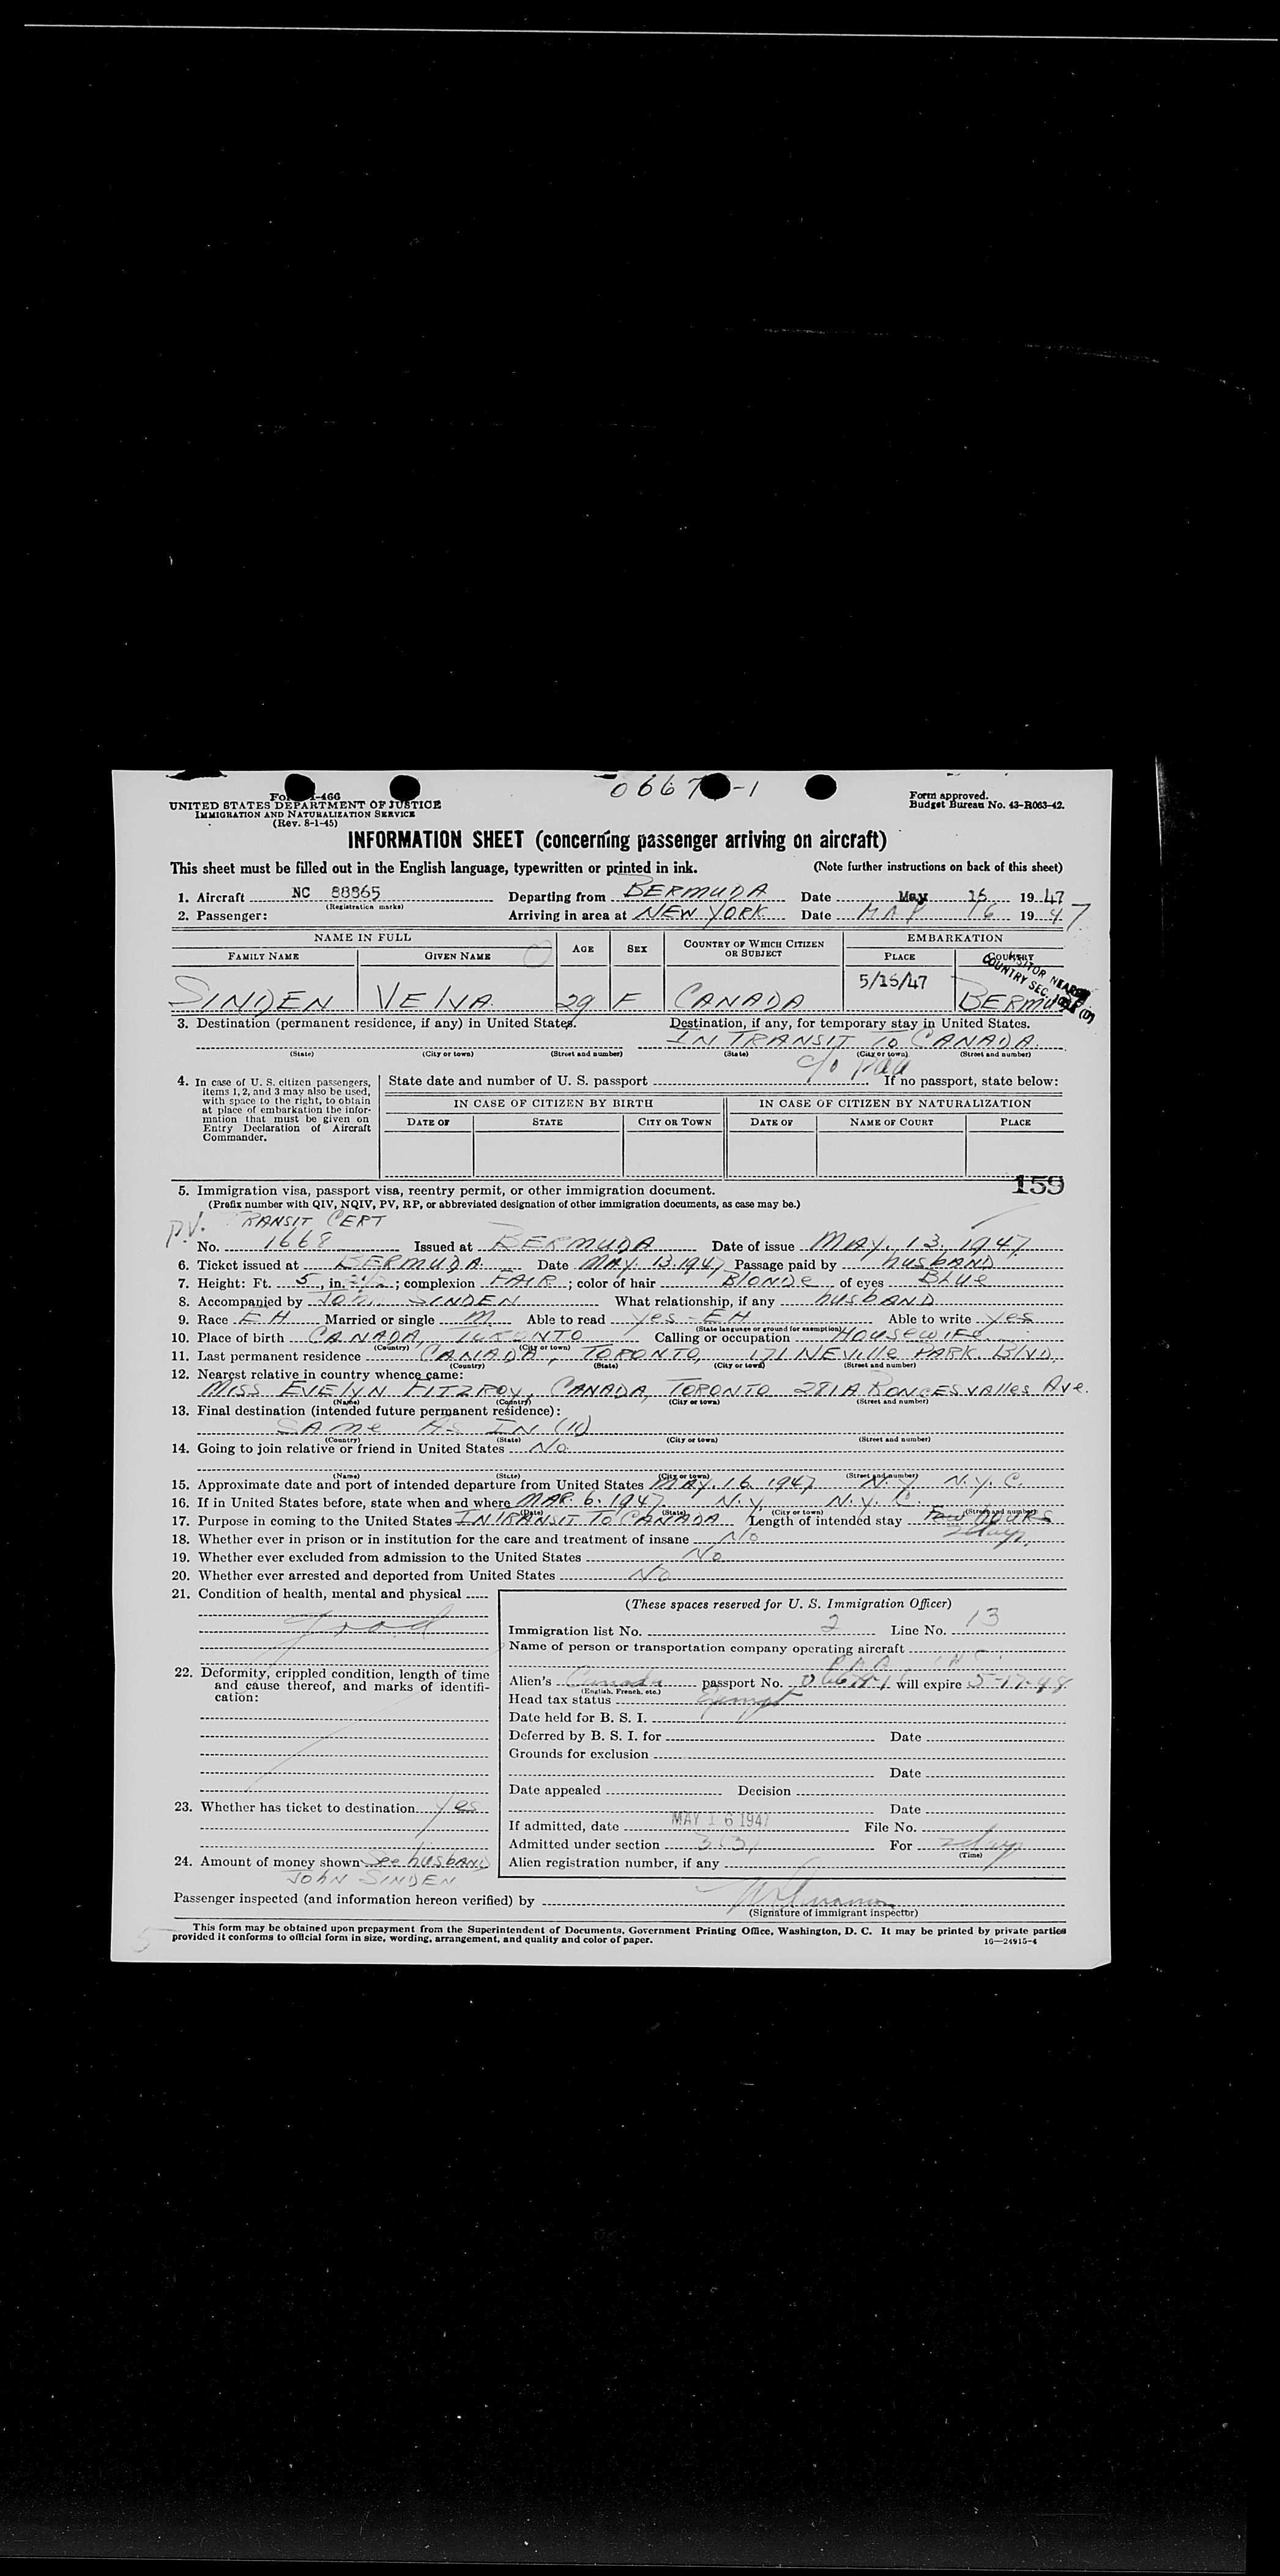 0667 -1
Fo -466
UNITED STATES DEPARTMENT OF JUSTICE
IMMIGRATION AND NATURALIZATION SERVICE
(Rev. 8-1-45)
Form approved.
Budget Bureau No. 43-R063-42.
INFORMATION SHEET (concerning passenger arriving on aircraft)
This sheet must be filled out in the English language, typewritten or printed in ink. (Note further instructions on back of this sheet)
1. Aircraft NC 88865 Departing from BERMUDA Date May 16 1947
(Registration marks)
2. Passenger: Arriving in area at NEW YORK Date MAY 16 1947
NAME IN FULL AGE SEX COUNTRY OF WHICH CITIZEN OR SUBJECT EMBARKATION
FAMILY NAME GIVEN NAME PLACE COUNTRY
5/16/47
SINDEN VELVA 29 F CANADA BERMUDA
3. Destination (permanent residence, if any) in United States. Destination, if any, for temporary stay in United States.
IN TRANSIT TO CANADA
(State) (City or town) (Street and number) (State) (City or town) (Street and number)
c/o paa
4. In case of U. S. citizen passengers, items 1, 2, and 3 may also be used, with space to the right, to obtain at place of embarkation the information that must be given on Entry Declaration of Aircraft Commander.
State date and number of U. S. passport If no passport, state below:
IN CASE OF CITIZEN BY BIRTH IN CASE OF CITIZEN BY NATURALIZATION
DATE OF STATE CITY OR TOWN DATE OF NAME OF COURT PLACE
159
5. Immigration visa, passport visa, reentry permit, or other immigration document.
(Prefix number with QIV, NQIV, PV, RP, or abbreviated designation of other immigration documents, as case may be.)
P.V. TRANSIT CERT
No. 1668 Issued at BERMUDA Date of issue MAY. 13. 1947
6. Ticket issued at BERMUDA Date MAY. 13. 1947 Passage paid by husBAND
7. Height: Ft. 5, in. ; complexion FAIR; color of hair BloNDe of eyes Blue
8. Accompanied by JOHN SINDEN What relationship, if any husBAND
9. Race EH Married or single M Able to read yes - EH Able to write yes
(State language or ground for exemption)
10. Place of birth CANADA, TORONTO Calling or occupation HOUSEWIFE
(Country) (City or town)
11. Last permanent residence CANADA, TORONTO, 171 NEVille PARK Blvd.
(Country) (State) (City or town) (Street and number)
12. Nearest relative in country whence came:
MISS EVELYN FITZROY, CANADA, TORONTO 281A RONCESVALLES Ave.
(Name) (Country) (City or town) (Street and number)
13. Final destination (intended future permanent residence):
SAMe AS IN (11)
(Country) (State) (City or town) (Street and number)
14. Going to join relative or friend in United States No
(Name) (State) (City or town) (Street and number)
15. Approximate date and port of intended departure from United States MAY. 16. 1947 N.Y. N.Y.C.
16. If in United States before, state when and where MAR. 6. 1947 N.Y. N.Y.C.
(Date) (State) (City or town) (Street and number)
17. Purpose in coming to the United States IN TRANSIT TO CANADA Length of intended stay Few HOURS
2 days
18. Whether ever in prison or in institution for the care and treatment of insane No
19. Whether ever excluded from admission to the United States No
20. Whether ever arrested and deported from United States No
21. Condition of health, mental and physical
good
22. Deformity, crippled condition, length of time and cause thereof, and marks of identification:
23. Whether has ticket to destination yes
24. Amount of money shown See husBAND
JOHN SINDEN
(These spaces reserved for U. S. Immigration Officer)
Immigration list No. 2 Line No. 13
Name of person or transportation company operating aircraft
Alien's Canada passport No. will expire 5-17-48
(English, French, etc.)
Head tax status Exempt
Date held for B. S. I.
Deferred by B. S. I. for Date
Grounds for exclusion
Date
Date appealed Decision
Date
If admitted, date MAY 16 1947 File No.
Admitted under section 3(3) For 2 days
(Time)
Alien registration number, if any
Passenger inspected (and information hereon verified) by
(Signature of immigrant inspector)
This form may be obtained upon prepayment from the Superintendent of Documents, Government Printing Office, Washington, D. C. It may be printed by private parties
provided it conforms to official form in size, wording, arrangement, and quality and color of paper. 16—24915-4